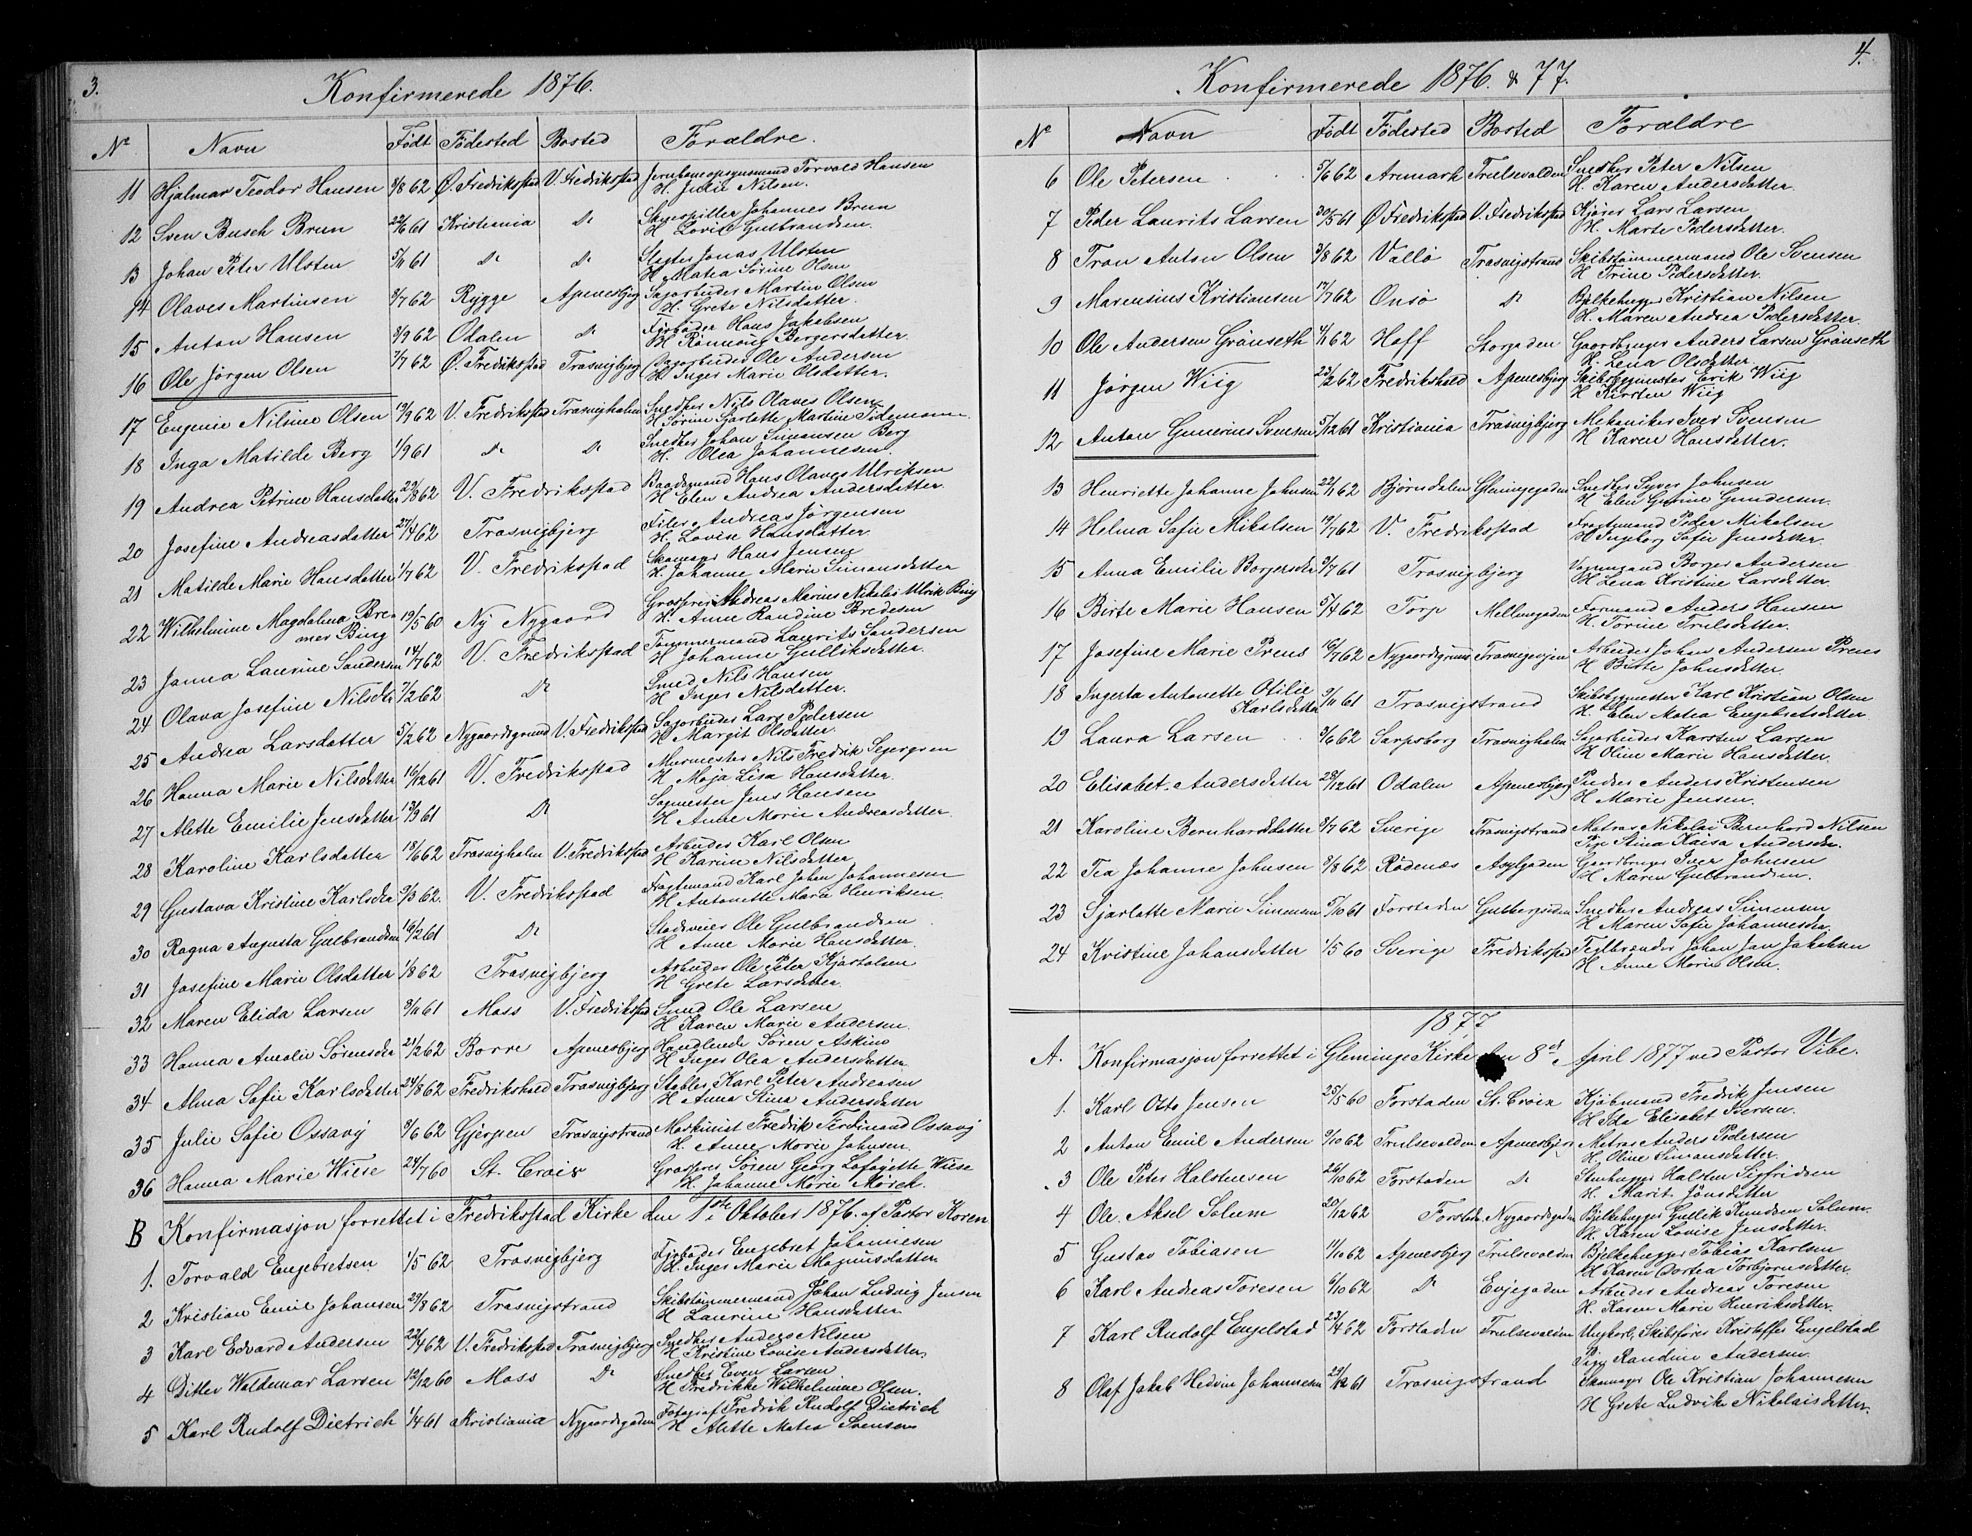 3.
Konfirmerede 1876.
Nº Navn Födt Födested Bosted Forældre.
11 Hjalmar Teodor Hansen 62 Ö. Fredrikstad V. Fredrikstad Torvald Hansen
H. Julie Nilsen.
12 Sven Busch Brun 61 Kristiania Do Skuespiller Johannes Brun
H Lovise Gulbrandsen.
13 Johan Peter Ulsten 61 Do Do Slegter Jonas Ulsten
H Matea Sörine Olsen
14 Olaves Martinsen 62 Rygge Apenesbjerg Sagarbeider Martin Olsen
H. Grete Nilsdatter.
15 Anton Hansen 62 Odalen Do Fyrböder Hans Jakobsen
H Rönnoug Bergersdatter
16 Ole Jörgen Olsen 62 Ö. Fredrikstad Trosvigbjerg Sagarbeider Ole Andersen
H Inger Marie Olsdatter.
17 Eugenie Nilsine Olsen 62 V. Fredrikstad Trosvighalen Snedker Nils Olaves Olsen
H Sörine Sjarlotte Martine Tidemann
18 Inga Matilde Berg 1/9 61 Do Do Snedker Johan Simonsen Berg
H. Olea Johannesen.
19 Andrea Petrine Hansdatter 62 V. Fredrikstad Baadsmand Hans Olaves Ulriksen
H Elen Andrea Andersdatter
20 Josefine Andreasdatter 27/4 62 Trosvigbjerg Filer Andreas Jörgensen
H. Lovise Hansdatter
21 Matilde Marie Hansdatter 1/7 62 V. Fredrikstad Skomager Hans Jensen
H. Johanne Marie Simonsdatter
22 Wilhelmine Magdalena Bremer Bing 19/5 60 Ny Nygaard Grosserer Andreas Marius Nikolai Ulrik Bing
H. Anne Randine Bredesen
23 Janna Laurine Sandersen 14/7 62 V. Fredrikstad Tömmermand Laurits Sandersen
H Johanne Gulliksdatter.
24 Olava Josefine Nilsdtr 7/2 62 Do Smed Nils Hansen
H Inger Nilsdatter.
25 Andrea Larsdatter 5/2 62 Nygaardsgrund V. Fredrikstad Sagarbeider Lars Pedersen
H Margit Olsdatter.
26 Hanna Marie Nilsdatter 16/12 61 V. Fredrikstad Murmester Nils Fredrik Segergren
H Maja Lisa Hansdatter.
27 Alette Emilie Jensdatter 61 Do Sagmester Jens Hansen
H Anne Marie Andreasdatter.
28 Karoline Karlsdatter 18/6 62 Trosvighalen V. Fredrikstad Arbeider Karl Olsen
H Karine Nilsdatter
29 Gustava Kristine Karlsdtr 62. V. Fredrikstad Fragtemand Karl Johan Johannesen
H Antonette Marie Henriksen.
30 Ragna Augusta Gulbrandsen 16/2 61 Do Ole Gulbrandsen
H Anne Marie Hansdatter.
31 Josefine Marie Olsdatter 1/8 62 Trosvigbjerg Arbeider Ole Peter Kjostolsen
H Grete Larsdatter.
32 Maren Elida Larsen 61 Moss V. Fredrikstad Smed Ole Larsen
H Karen Marie Andersen.
33 Hanna Amalie Sörensdtr 21/2 62 Borre Apenesbjerg Handlende Sören Askino
H Inger Olea Andersdatter
34 Alma Sofie Karlsdatter 24/8 62 Fredrikshald Trosvigbjerg Stabler Karl Peter Andreasen
H Anna Stina Andersdatter
35 Julie Sofie Ossavy 62 Gjerpen Trosvigstrand Maskinist Fredrik Ferdinand Ossavy
H. Anne Marie Johnsen.
36 Hanna Marie Wiese 24/7 60 St. Croix Grosserer Sören Georg Lafayette Wiese
H. Johanne Marie Mörch.
B Konfirmasjon forrettet i Fredrikstad Kirke den 1ste i Oktober 1876. af Pastor Koren
1. Torvald Engebretsen. 1/5 62 Trosvigbjerg Fyrböder Engebret Johannesen
H. Inger Marie Magnusdatter
2 Kristian Emil Johansen 29/8 62 Trosvigstrand Skibstömmermand Johan Ludvig Jensen
H Laurine Hansdatter
3 Karl Edvard Andersen 62 V. Fredrikstad Trosvigbjerg Snedker Anders Nilsen
H Kristine Lovise Andersdatter.
4 Ditlev Waldemar Larsen 12/12 60 Moss Do Snedker Even Larsen
H Fredrikke Wilhelmine Olsen.
5 Karl Rudolf Dietrich 1/4 61 Kristiania Nygaardsgaden Fotograf Fredrik Rudolf Dietrich
H Alette Matea Svensen
4.
Konfirmerede 1876. & 77.
Nº Navn Födt Födested Bosted Forældre
6 Ole Petersen 5/6 62 Aremark Trulsevolden Snedker Peter Nilsen
H. Karen Andersdatter.
7 Peder Laurits Larsen 30/5 61 Ö Fredrikstad V. Fredrikstad Kjører Lars Larsen
H. Marte Pedersdatter.
8 Tron Anton Olsen 62 Vallö Trosvigstrand Skibstömmermand Ole Svensen
H Trine Pedersdatter.
9 Marensius Kristiansen 17/7 62 Onsö Do Bjelkehugger Kristian Nilsen
H. Maren Andrea Pedersdatter.
10 Ole Andersen Grönseth 62 Hoff Storgaden Gaardbruger Anders Larsen Grönseth
H. Lena Olsdatter.
11 Jörgen Wiig 62 Fredrikshald Apenesbjerg Skibsbygmester Erik Wiig
H Kirsten Wiig
12 Anton Gunerius Svensen 5/12 61 Kristiania Trosvigbjerg Mekaniker Iver Svensen
H Karen Hansdatter.
13 Henriette Johanne Johnsen 62 Björndalen Glemmegaden Snedker Syver Johnsen
H Elen Gurine Gundersen.
14 Helma Sofie Mikalsen 19/7 62 V. Fredrikstad Fragtemand Peder Mikalsen
H Ingeborg Sofie Jensdatter.
15 Anna Emilie Borgersdtr 61 Trosvigbjerg Vognmand Borger Andersen
H Lena Kristine Larsdatter.
16 Birte Marie Hansen 5/4 62 Torp Mellemgaden Formand Anders Hansen
H. Torine Trulsdatter.
17 Josefine Marie Prens 16/7 62 Nygaardsgrund Trosvigveien Arbeider Johan Andersen Prens
H Birtte Johnsdatter.
18 Ingerta Antonette Otilie Karlsdatter 61 Trosvigstrand Skibsbygmester Karl Kristian Olsen
H. Elen Matea Engebretsdatter
19 Laura Larsen 62 Sarpsborg Trosvighalen Sagarbeider Karsten Larsen
H Oline Marie Hansdatter.
20 Elisabet Andersdatter 28/12 61 Odalen Apenesbjerg Pudser Anders Kristensen
H Marie Jensen.
21 Karoline Bernhardsdatter 62 Sverige Trosvigstrand Matros Nikolai Bernhard Nilsen
Pige Stina Kaisa Andersdtr.
22 Tea Johanne Johnsen 62 Rödenæs Asylgaden Gaardbruger Iver Johnsen
H Maren Gulbrandsen.
23 Sjarlotte Marie Simensen 61 Forstaden Snedker Andreas Simensen
H Maren Sofie Johannesdtr.
24 Kristine Johansdatter 1/5 60 Sverige Fredrikstad Teglbrænder Johan Jan Jakobsen
H Anne Marie Olsen.
1877
A. Konfirmasjon forrettet i Glemmge Kirke den 8de April 1877 ved Pastor Vibe.
1. Karl Otto Jensen 25/5 60 Forstaden St. Croix Kjöbmand Fredrik Jensen
H Ida Elisabet Iversen.
2 Anton Emil Andersen 62 Trulsevolden Apenesbjerg Matros Anders Pedersen
H. Oline Simonsdatter.
3 Ole Peter Halstensen 26/10 62 Forstaden Do Stenhugger Halsten Sigfridsen
H. Marit Jönsdatter
4 Ole Aksel Solum 20/12 62 Forstaden Nygaardsgaden Bjelkehugger Gullik Knudsen Solum.
H Karen Lovise Jensdatter.
5 Gustav Tobiasen 62 Apenesbjerg Trulsevolden Bjelkehugger Tobias Karlsen
H Karen Dortea Torbjornsdatter
6 Karl Andreas Toresen 6/10 62 Do Evjegaden Arbeider Andreas Toresen
H. Karen Marie Henriksdatter.
7 Karl Rudolf Engelstad 62 Forstaden Trulsevolden Ungkarl, Skibsfører Kristoffer Engelstad
Pige Randine Andersen.
8 Olaf Jakob Hedvin Johannesen 61 Trosvigstrand Skomager Ole Kristian Johannesen
H Grete Ludvike Nikolaisdatter.